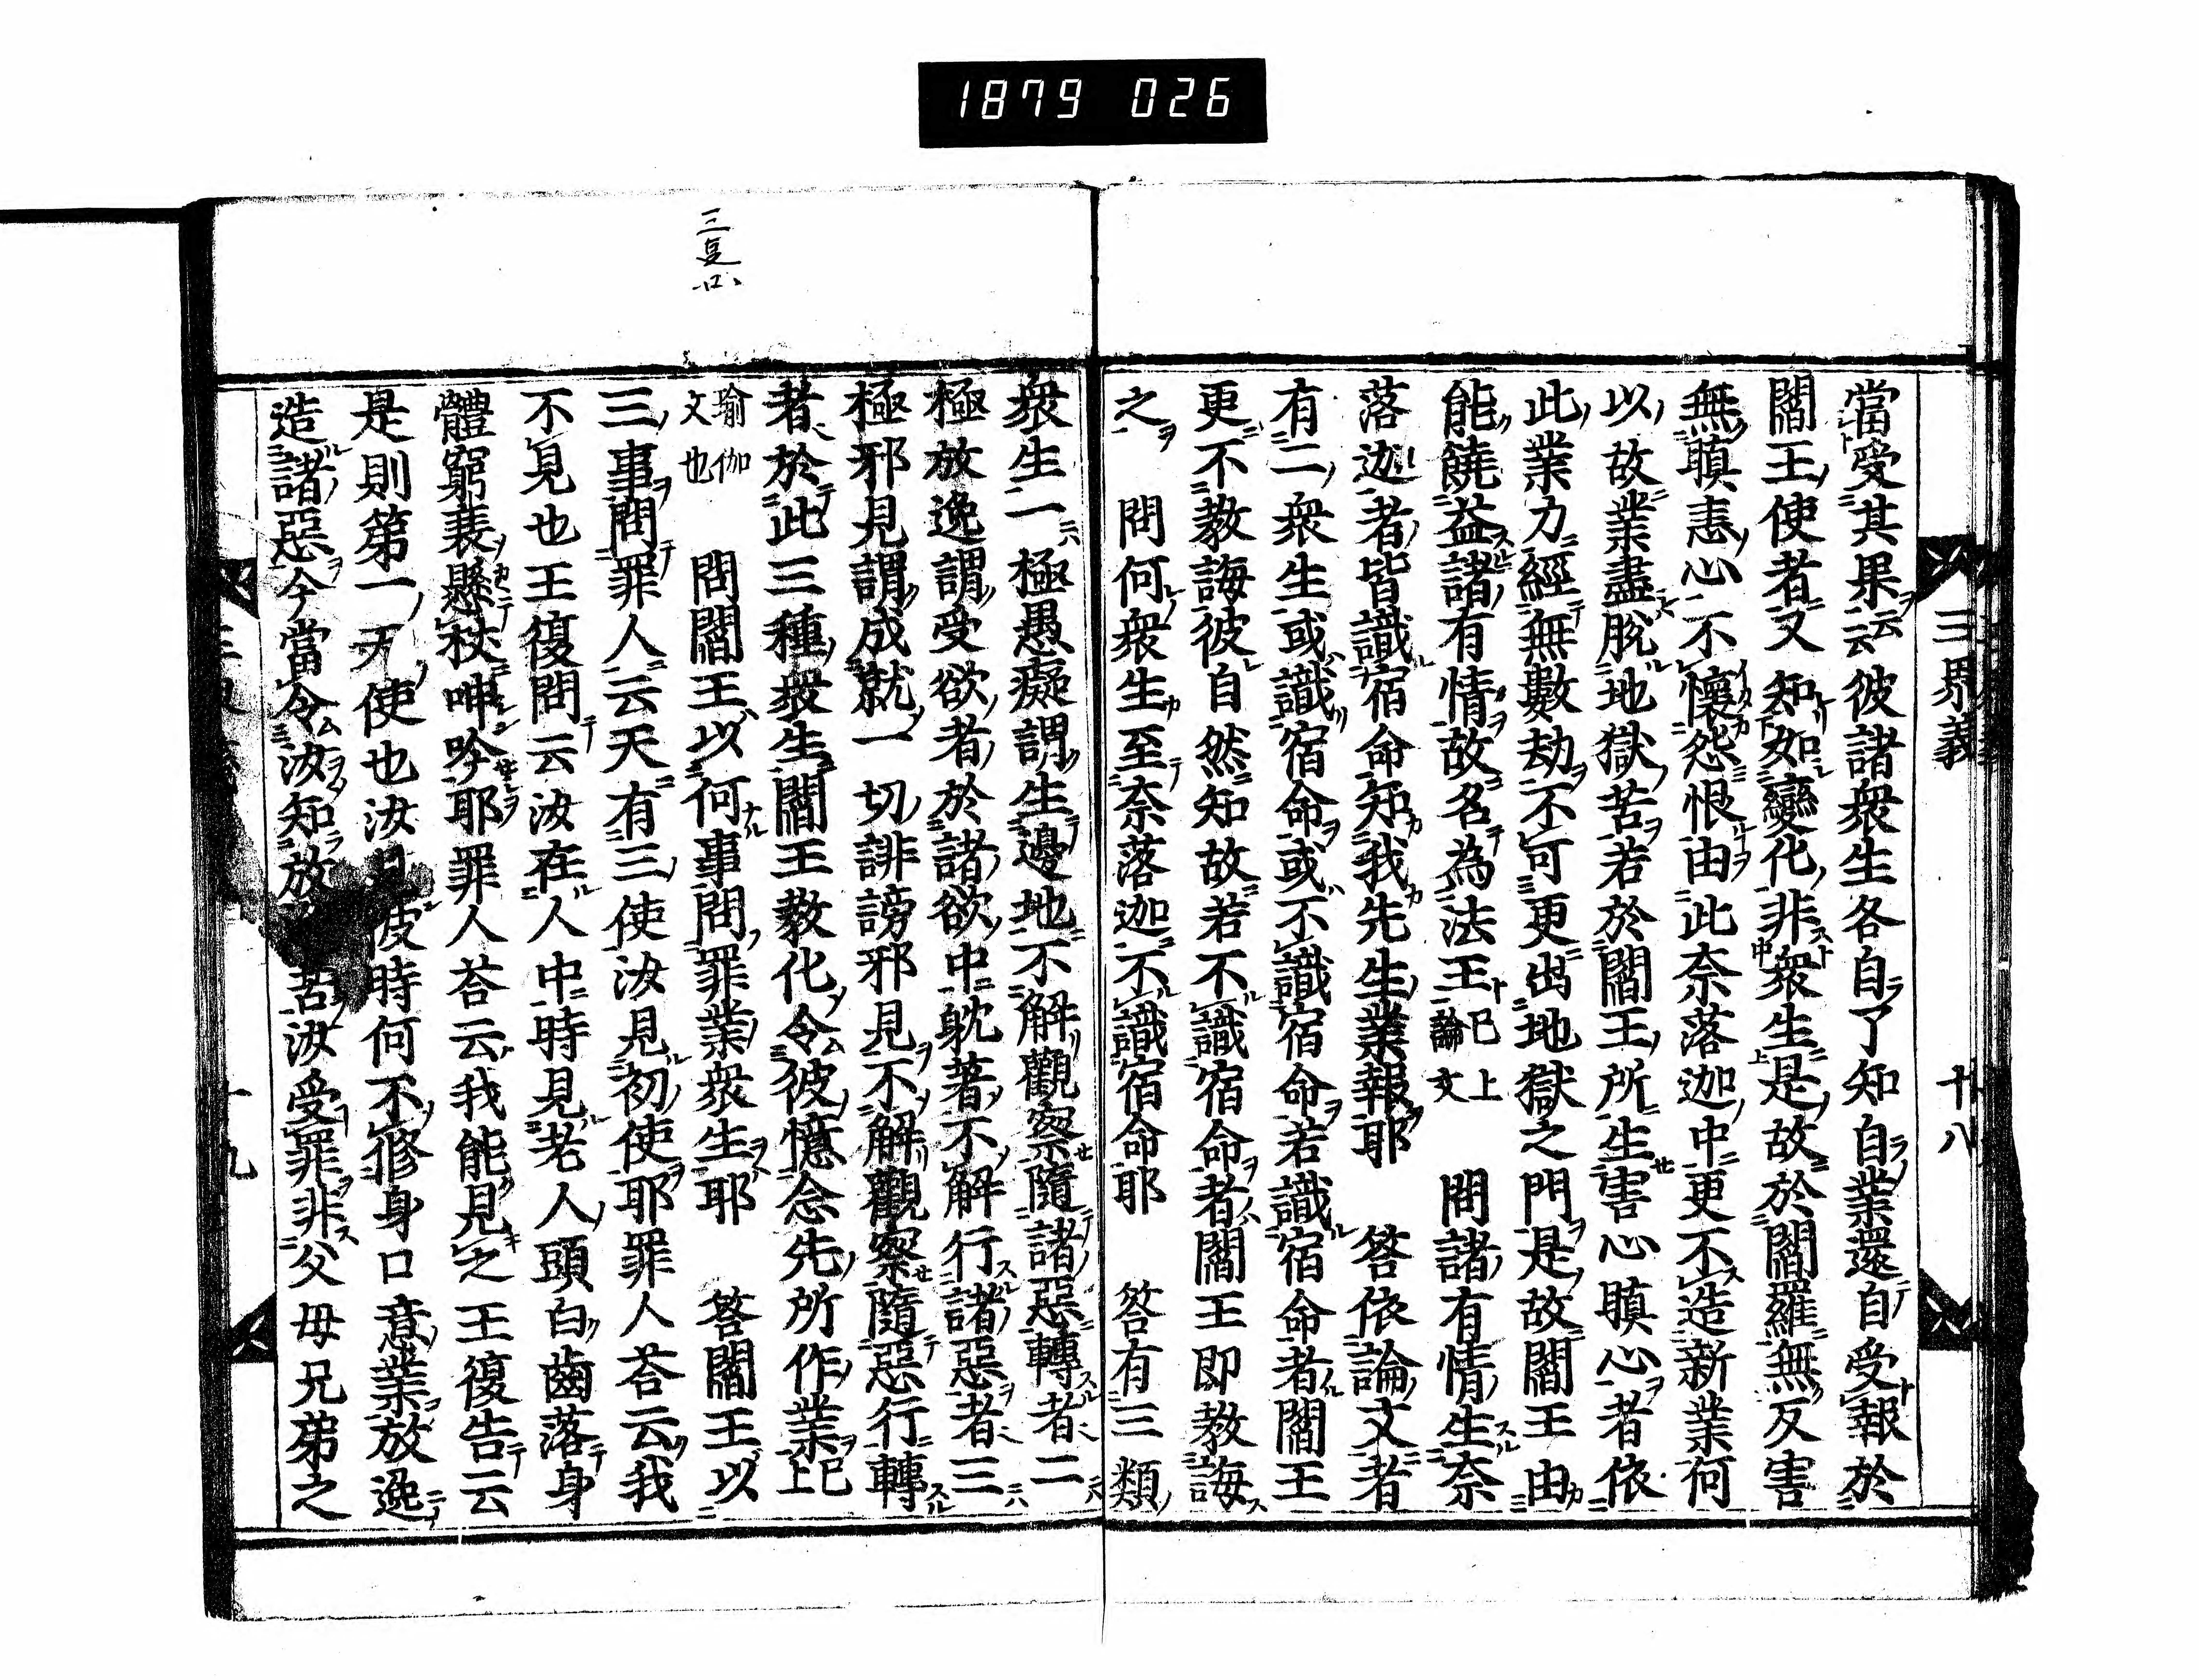 1879 026
三界義
十八
當受其果云云彼諸衆生各自了知自業還自受報於
閻王使者又知如變化非衆生是故於閻羅無反害
無瞋恚心不懷怨恨由此奈落迦中更不造新業何
以故業盡脫地獄苦若於閻王所生害心瞋心者依
此業力經無數劫不可更出地獄之門是故閻王由
能饒益諸有情故名為法王已上論文 問諸有情生奈
落迦者皆識宿命知我先生業報耶 答依論文者
有二衆生或識宿命或不識宿命若識宿命者閻王
更不教誨彼自然知故若不識宿命者閻王即教誨
之 問何衆生至奈落迦不識宿命耶 答有三類
三复口
衆生一極愚癡謂生邊地不解觀察隨諸惡轉者二
極放逸謂受欲者於諸欲中躭著不解行諸惡者三
極邪見謂成就一切誹謗邪見不解觀察隨惡行轉
者於此三種衆生閻王教化令彼憶念先所作業已上
瑜伽文也 問閻王以何事問罪業衆生耶 答閻王以
三事問罪人云天有三使汝見初使耶罪人荅云我
不見也王復問云汝在人中時見老人頭白齒落身
體窮裴懸杖呻吟耶罪人荅云我能見之王復告云
是則第一天使也汝見彼時何不修身口意業放逸
造諸惡今當令汝知放苦汝受罪非父母兄弟之